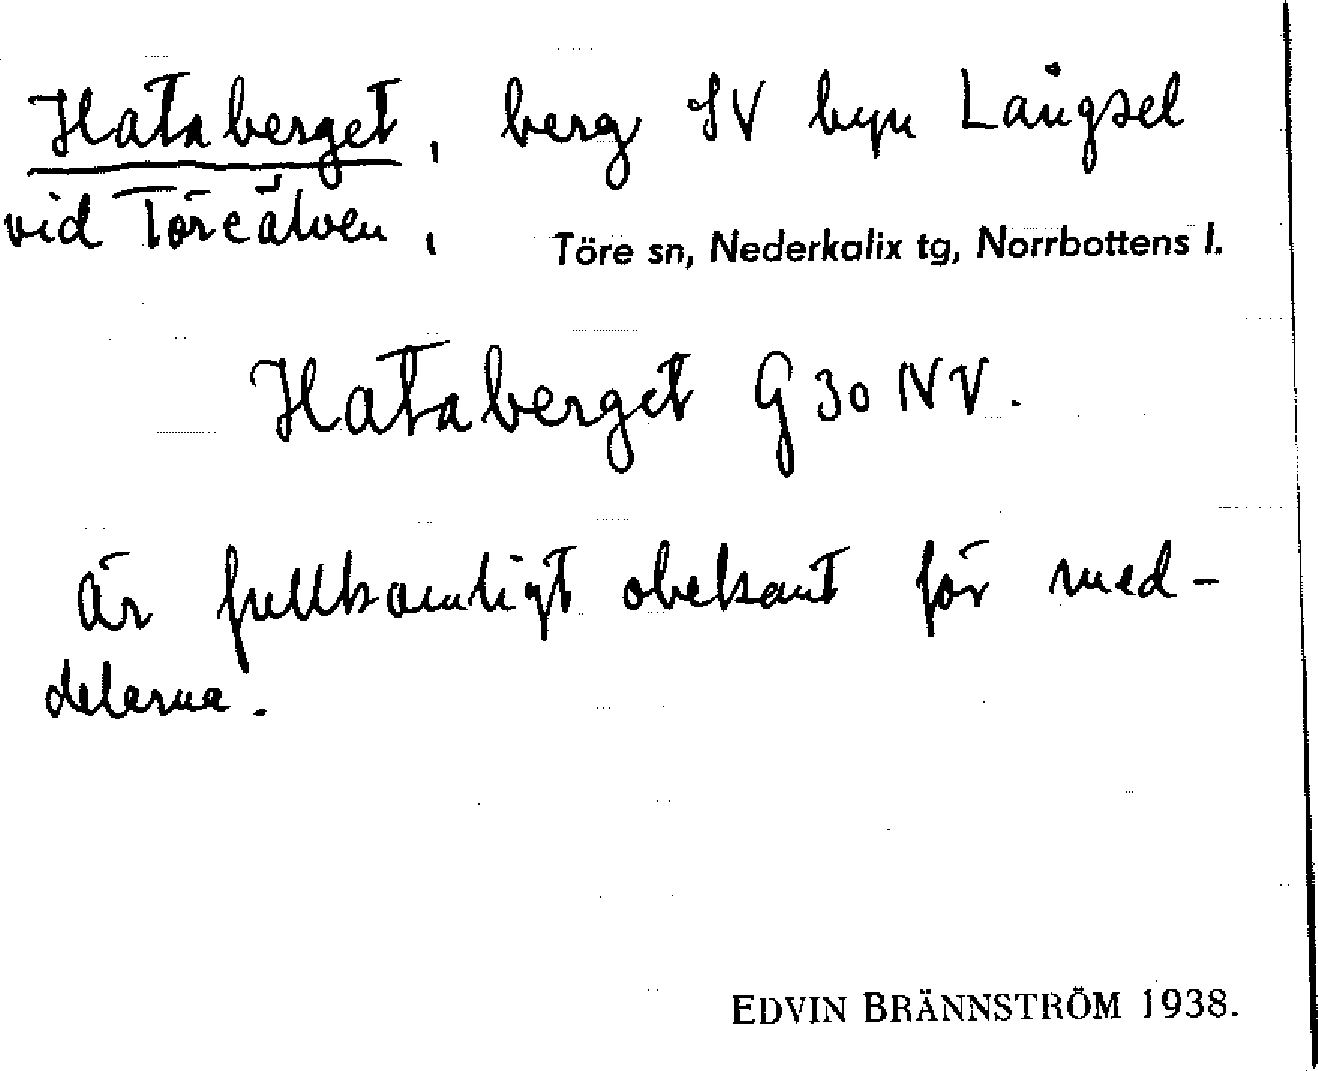 Hataberget, berg SV byn Långsel
vid Töreälven,
Töre sn, Nederkalix tg, Norrbottens l.
Hataberget G 30 NV.
är fullkomligt obekant för med-
delarna.
EDVIN BRÄNNSTRÖM 1938.